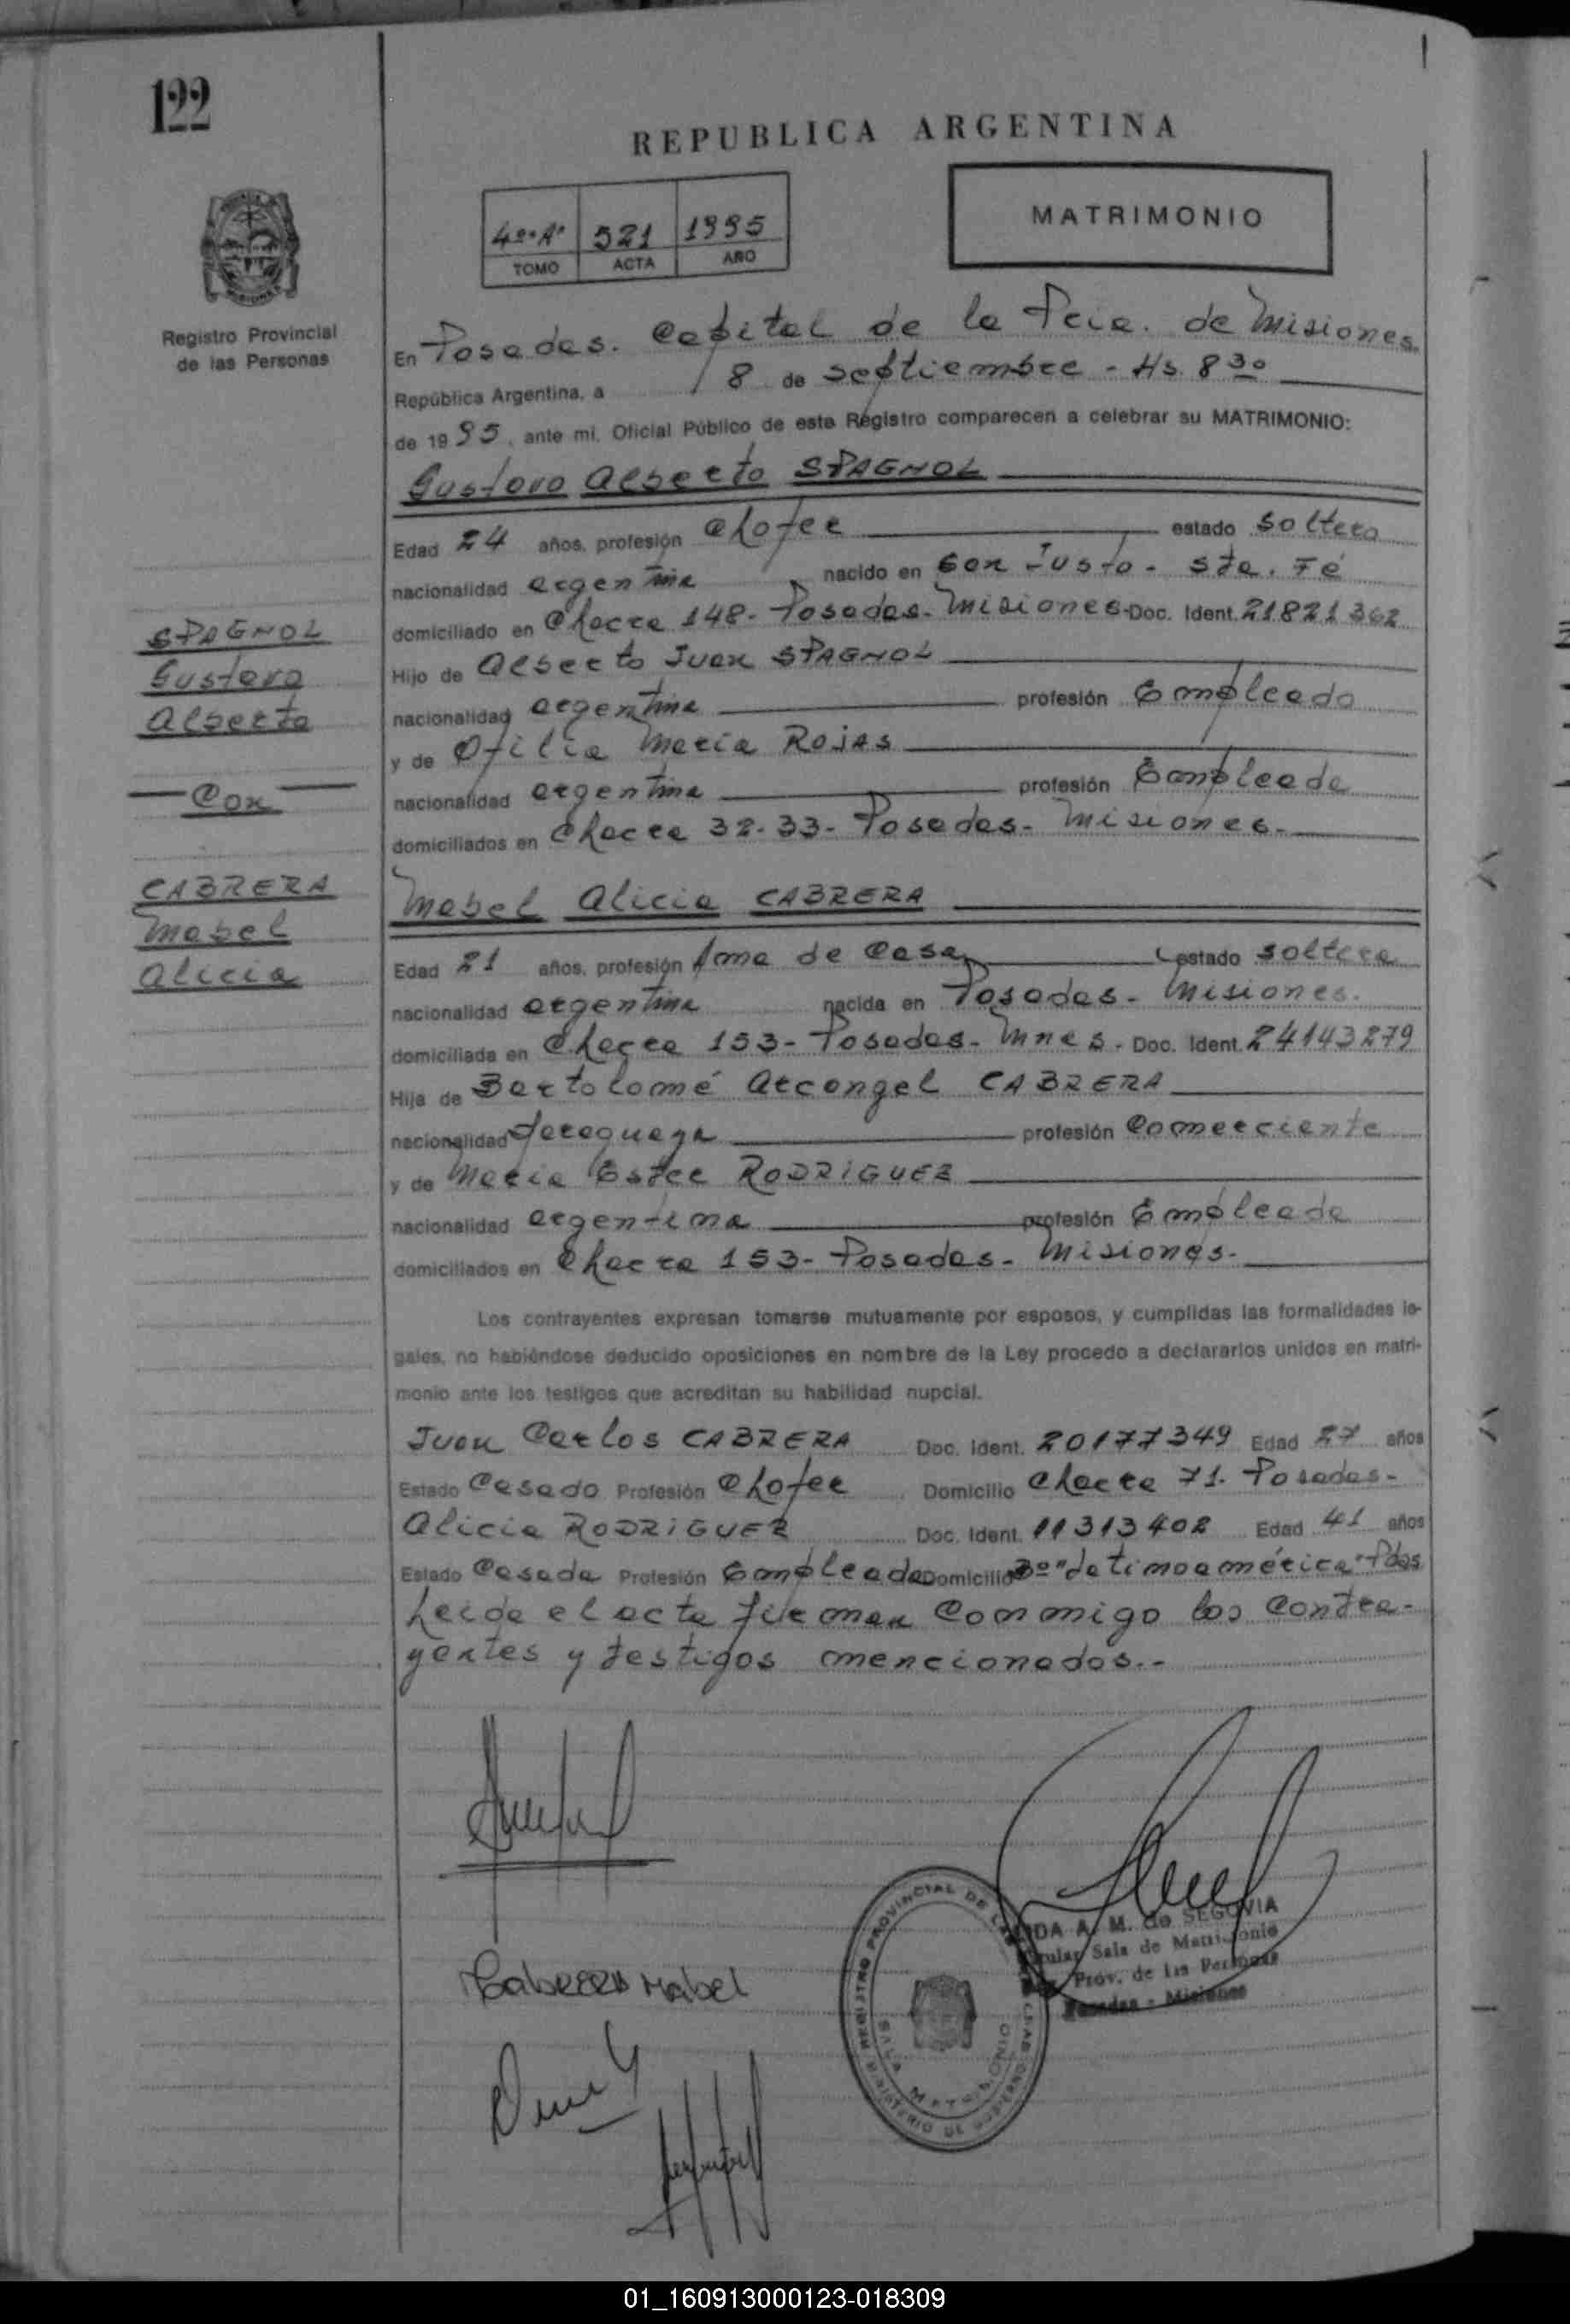 122
REPUBLICA ARGENTINA
4º "A" 521 1995
TOMO ACTA AÑO
MATRIMONIO
Registro Provincial
de las Personas
En Posadas. Capital de la Pcia. de Misiones.
República Argentina, a 8 de septiembre - Hs. 8 30
de 1995, ante mi, Oficial Público de este Régistro comparecen a celebrar su MATRIMONIO:
Gustavo Alberto SPAGNOL
Edad 24 años, profesión Chofer estado soltero
nacionalidad argentina nacido en San Justo - Sta. Fé
domiciliado en Chacra 148 - Posadas - Misiones - Doc. Ident. 21821362
Hijo de Alberto Juan SPAGNOL
nacionalidad argentina profesión Empleado
y de Ofilia María ROJAS
nacionalidad argentina profesión Empleada
domiciliados en Chacra 32-33 - Posadas - Misiones.
Mabel Alicia CABRERA
Edad 21 años, profesión Ama de Casa estado soltera
nacionalidad argentina nacida en Posadas - Misiones.
domiciliada en Chacra 153 - Posadas - Mnes - Doc. Ident. 24143279
Hija de Bartolomé Arcangel CABRERA
nacionalidad paraguaya profesión Comerciante
y de María Ester RODRIGUEZ
nacionalidad argentina profesión Empleada
domiciliados en Chacra 153 - Posadas - Misiones.
SPAGNOL
Gustavo
Alberto
Con
CABRERA
Mabel
Alicia
Los contrayentes expresan tomarse mutuamente por esposos, y cumplidas las formalidades le-
gales, no habiéndose deducido oposiciones en nombre de la Ley procedo a declararlos unidos en matri-
monio ante los testigos que acreditan su habilidad nupcial.
Juan Carlos CABRERA Doc. Ident. 20177349 Edad 27 años
Estado Casado Profesión Chofer Domicilio Chacra 71 - Posadas -
Alicia RODRIGUEZ Doc. Ident. 11313402 Edad 41 años
Estado Casada Profesión Empleada Domicilio Bº "Latinoamérica" Pdas
Leida el acta firman conmigo los contra-
yentes y testigos mencionados.-
CABRERA Mabel
DA A. M. de SEGOVIA
Titular Sala de Matrimonio
Prov. de las Personas
Posadas - Misiones
REGISTRO PROVINCIAL DE LAS PERSONAS
MINISTERIO DE GOBIERNO
SALA MATRIMONIO
01_160913000123-018309